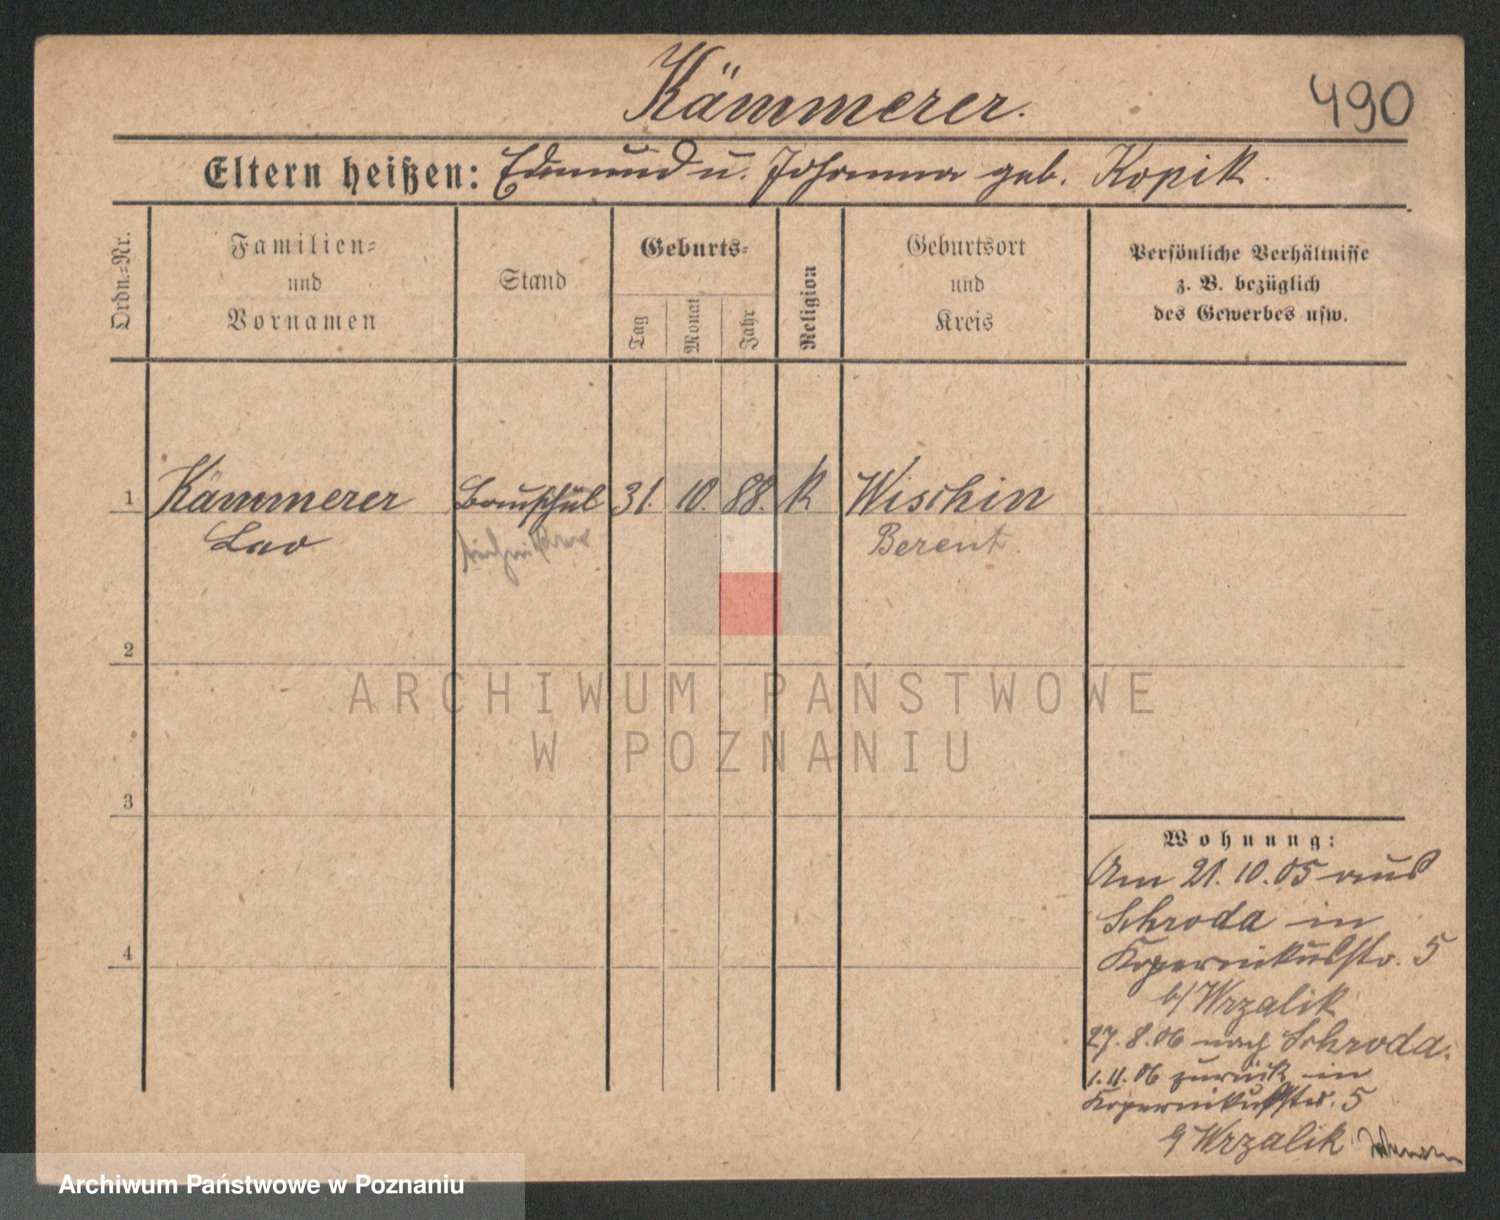 Kämmerer.
490
Eltern heißen: Edmund u. Johanna geb. Kopik.
Ordn.-Nr.
Familien-
und
Vornamen
Stand
Geburts-
Tag
Monat
Jahr
Religion
Geburtsort
und
Kreis
Persönliche Verhältnisse
z. B. bezüglich
des Gewerbes usw.
1 Kämmerer Bauschül 31. 10. 88. K Wischin
Leo techniker Berent.
2
ARCHIWUM PAŃSTWOWE
W POZNANIU
3
Wohnung:
Am 21.10.05 aus
Schroda in
Kopernikusstr. 5
b/ Wrzalik
27.8.06 nach Schroda.
1.11.06 zurück in
Kopernikusstr. 5
Wrzalik
4
Archiwum Państwowe w Poznaniu